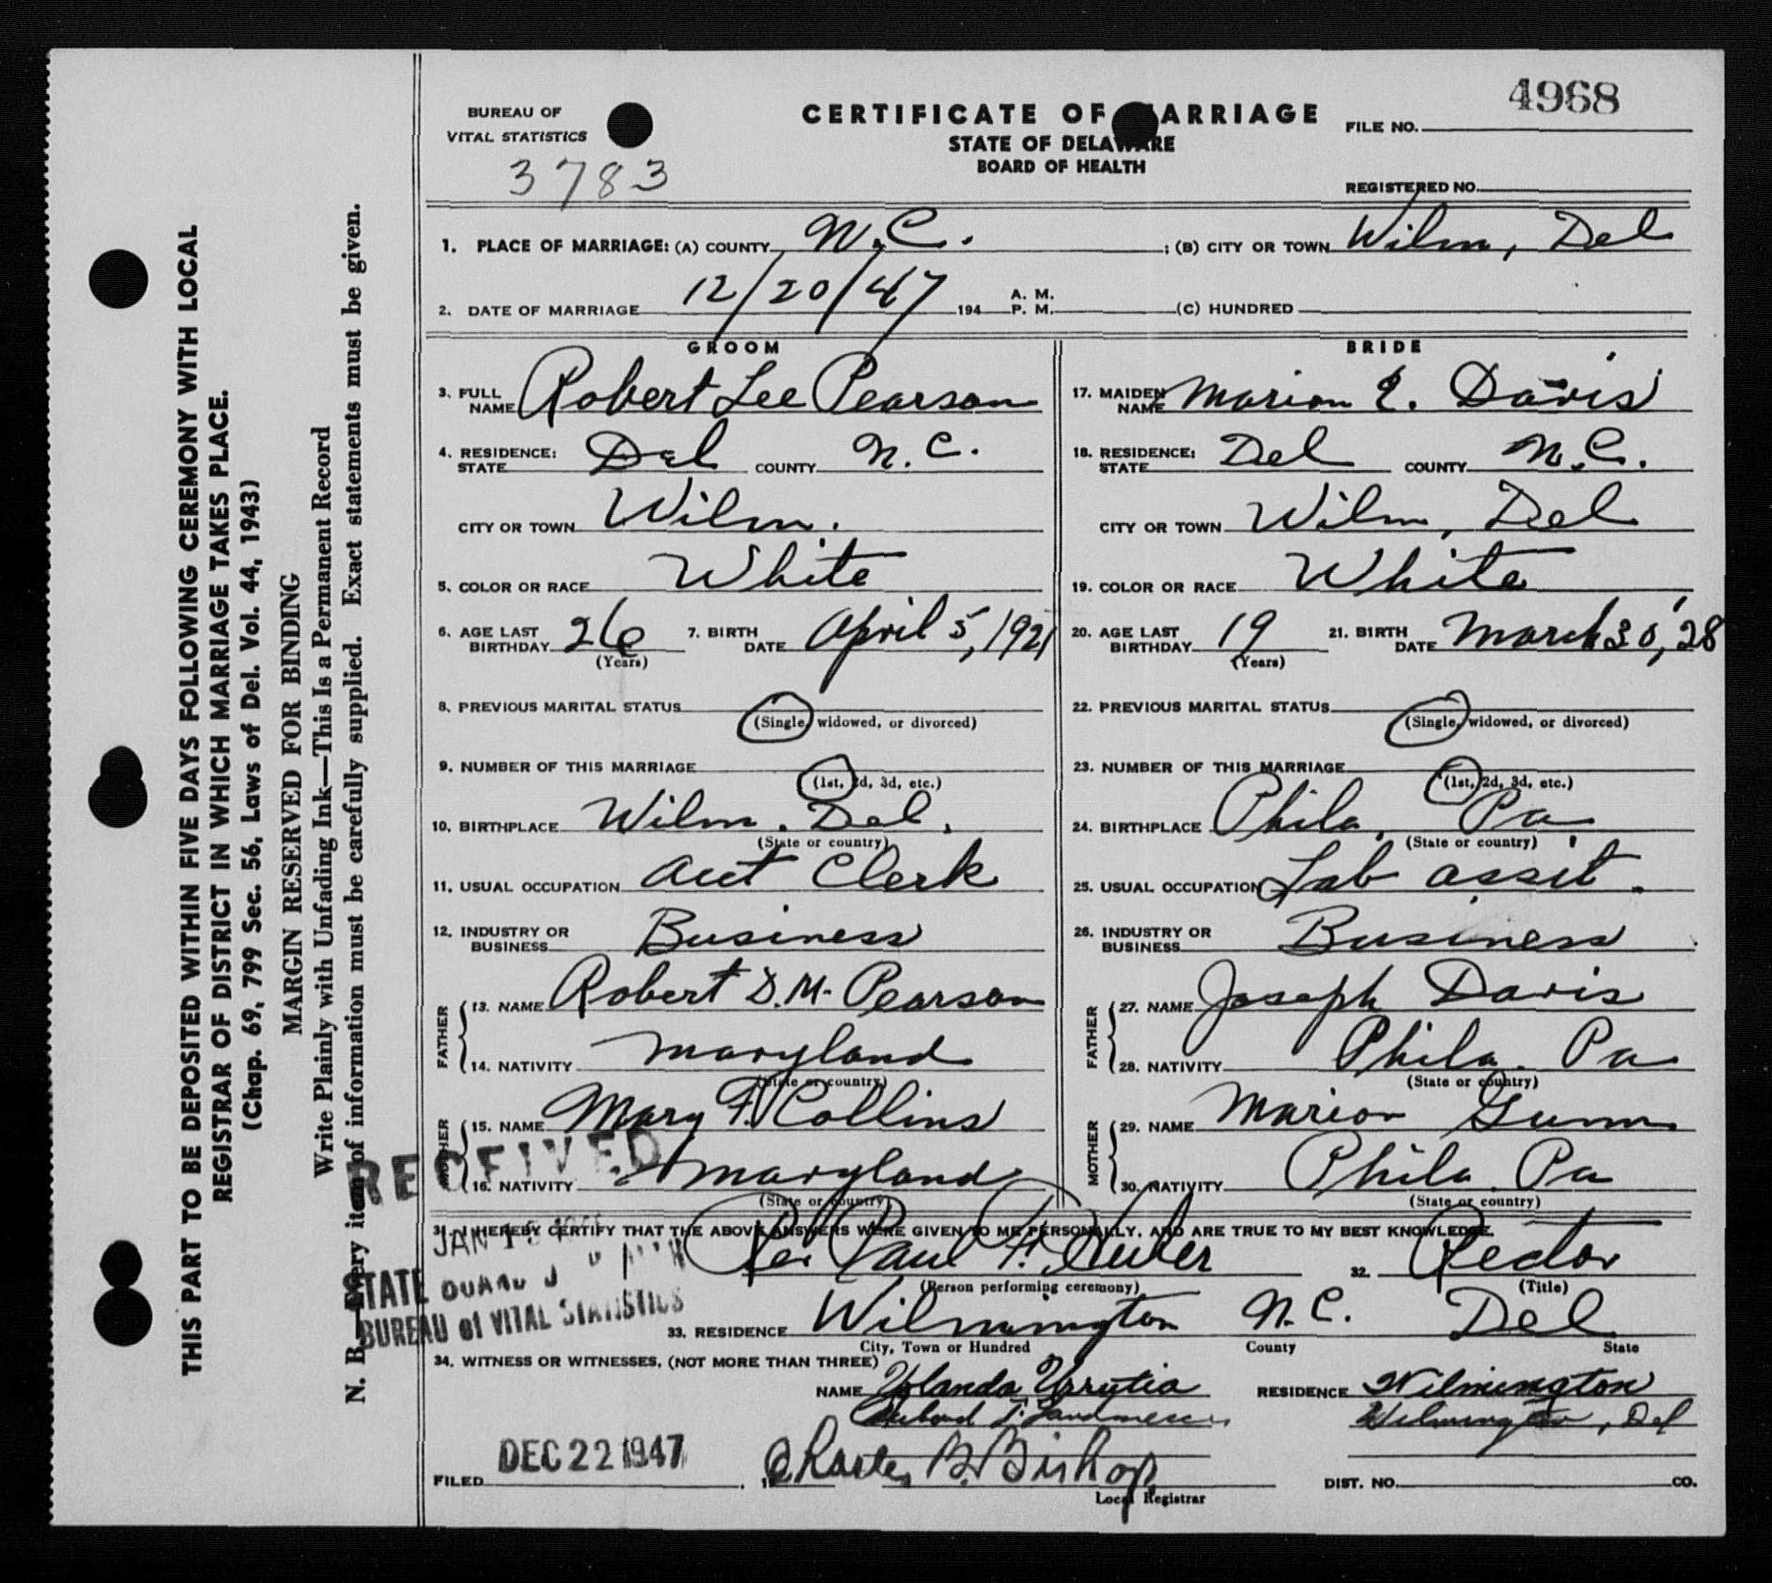 THIS PART TO BE DEPOSITED WITHIN FIVE DAYS FOLLOWING CEREMONY WITH LOCAL
REGISTRAR OF DISTRICT IN WHICH MARRIAGE TAKES PLACE.
(Chap. 69, 799 Sec. 56, Laws of Del. Vol. 44, 1943)
MARGIN RESERVED FOR BINDING
Write Plainly with Unfading Ink—This Is a Permanent Record
N. B.—Every item of information must be carefully supplied. Exact statements must be given.
BUREAU OF
VITAL STATISTICS
3783
CERTIFICATE OF MARRIAGE
STATE OF DELAWARE
BOARD OF HEALTH
4968
FILE NO.
REGISTERED NO.
1. PLACE OF MARRIAGE: (A) COUNTY N.C. ; (B) CITY OR TOWN Wilm, Del
2. DATE OF MARRIAGE 12/20/47 194 A. M. P. M. (C) HUNDRED
GROOM
3. FULL NAME Robert Lee Pearson
4. RESIDENCE: STATE Del COUNTY N.C.
CITY OR TOWN Wilm.
5. COLOR OR RACE White
6. AGE LAST BIRTHDAY 26 (Years) 7. BIRTH DATE April 5, 1921
8. PREVIOUS MARITAL STATUS
(Single, widowed, or divorced)
9. NUMBER OF THIS MARRIAGE
(1st, 2d, 3d, etc.)
10. BIRTHPLACE Wilm. Del.
(State or country)
11. USUAL OCCUPATION Acct Clerk
12. INDUSTRY OR BUSINESS Business
FATHER
13. NAME Robert D.M. Pearson
14. NATIVITY Maryland
(State or country)
MOTHER
15. NAME Mary F. Collins
16. NATIVITY Maryland
(State or country)
BRIDE
17. MAIDEN NAME Marion E. Davis
18. RESIDENCE: STATE Del COUNTY N.C.
CITY OR TOWN Wilm, Del
19. COLOR OR RACE White
20. AGE LAST BIRTHDAY 19 (Years) 21. BIRTH DATE March 30, '28
22. PREVIOUS MARITAL STATUS
(Single, widowed, or divorced)
23. NUMBER OF THIS MARRIAGE
(1st, 2d, 3d, etc.)
24. BIRTHPLACE Phila, Pa.
(State or country)
25. USUAL OCCUPATION Lab assit.
26. INDUSTRY OR BUSINESS Business
FATHER
27. NAME Joseph Davis
28. NATIVITY Phila. Pa
(State or country)
MOTHER
29. NAME Marion Gunn
30. NATIVITY Phila. Pa
(State or country)
RECEIVED
JAN
STATE BOARD
BUREAU of VITAL STATISTICS
31. I HEREBY CERTIFY THAT THE ABOVE ANSWERS WERE GIVEN TO ME PERSONALLY, AND ARE TRUE TO MY BEST KNOWLEDGE.
Rev Paul 32. Rector
(Person performing ceremony) (Title)
33. RESIDENCE Wilmington N.C. Del
City, Town or Hundred County State
34. WITNESS OR WITNESSES, (NOT MORE THAN THREE)
NAME Yolanda Yrrytia RESIDENCE Wilmington
Wilmington, Del
FILED DEC 22 1947 Charles B. Bishop
Local Registrar
DIST. NO. CO.